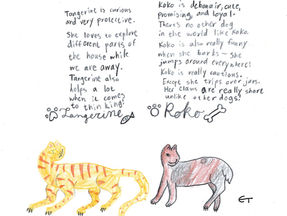 Tangerine is curious
and very protective.
She loves to explore
different parts of
the house while
we are away.
Tangerine also
helps a lot
when it comes
to thinking!
Tangerine
Roko is debonair, cute,
promising, and loyal.
There's no other dog
in the world like Roko.
Roko is also really funny
when she barks - she
jumps around everywhere!
Roko is really cautious.
Except she trips over
Her claws are really short
unlike other dogs!
Roko
ET